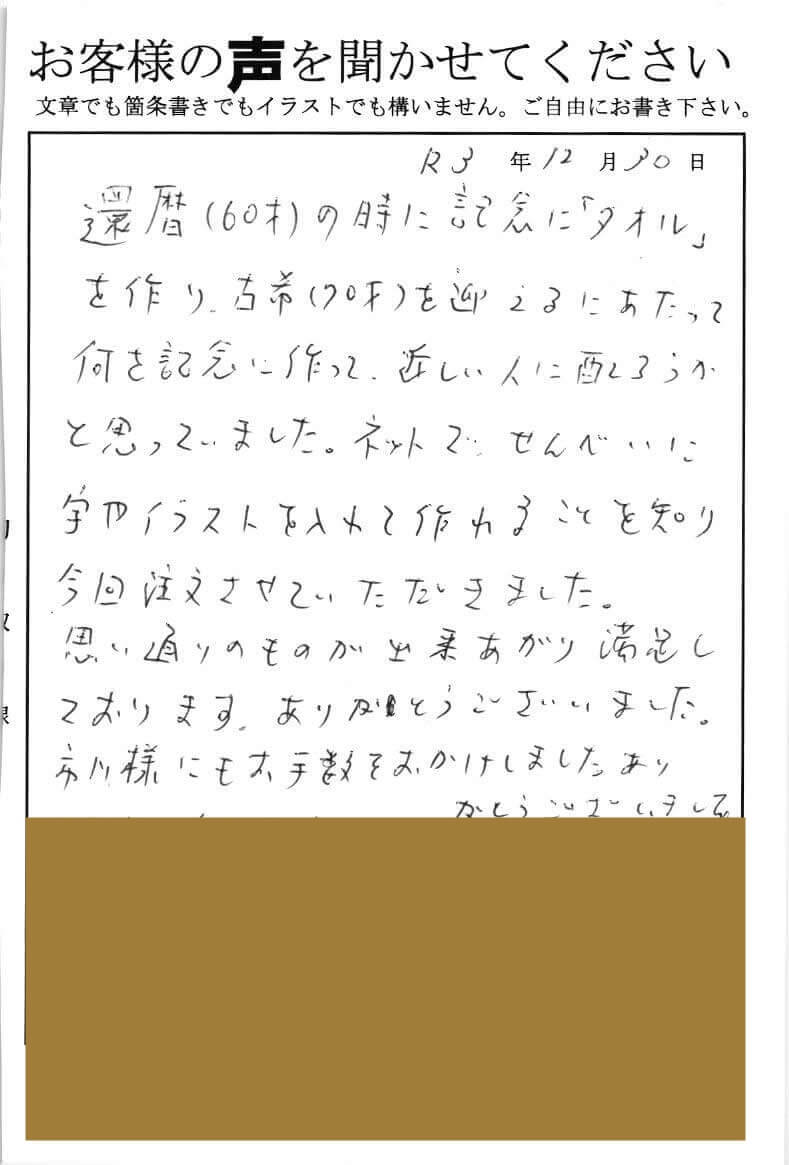 お客様の声を聞かせてください
文章でも箇条書きでもイラストでも構いません。ご自由にお書き下さい。
R3年12月30日
還暦(60才)の時に記念に「タオル」
を作り、古希(70才)を迎えるにあたって
何を記念に作って、近しい人に配ろうか
と思っていました。ネットで、せんべいに
字やイラストを入れて作れることを知り
今回注文させていただきました。
思い通りのものが出来あがり満足し
ております。ありがとうございました。
市川様にもお手数をおかけしました。あり
がとうございました